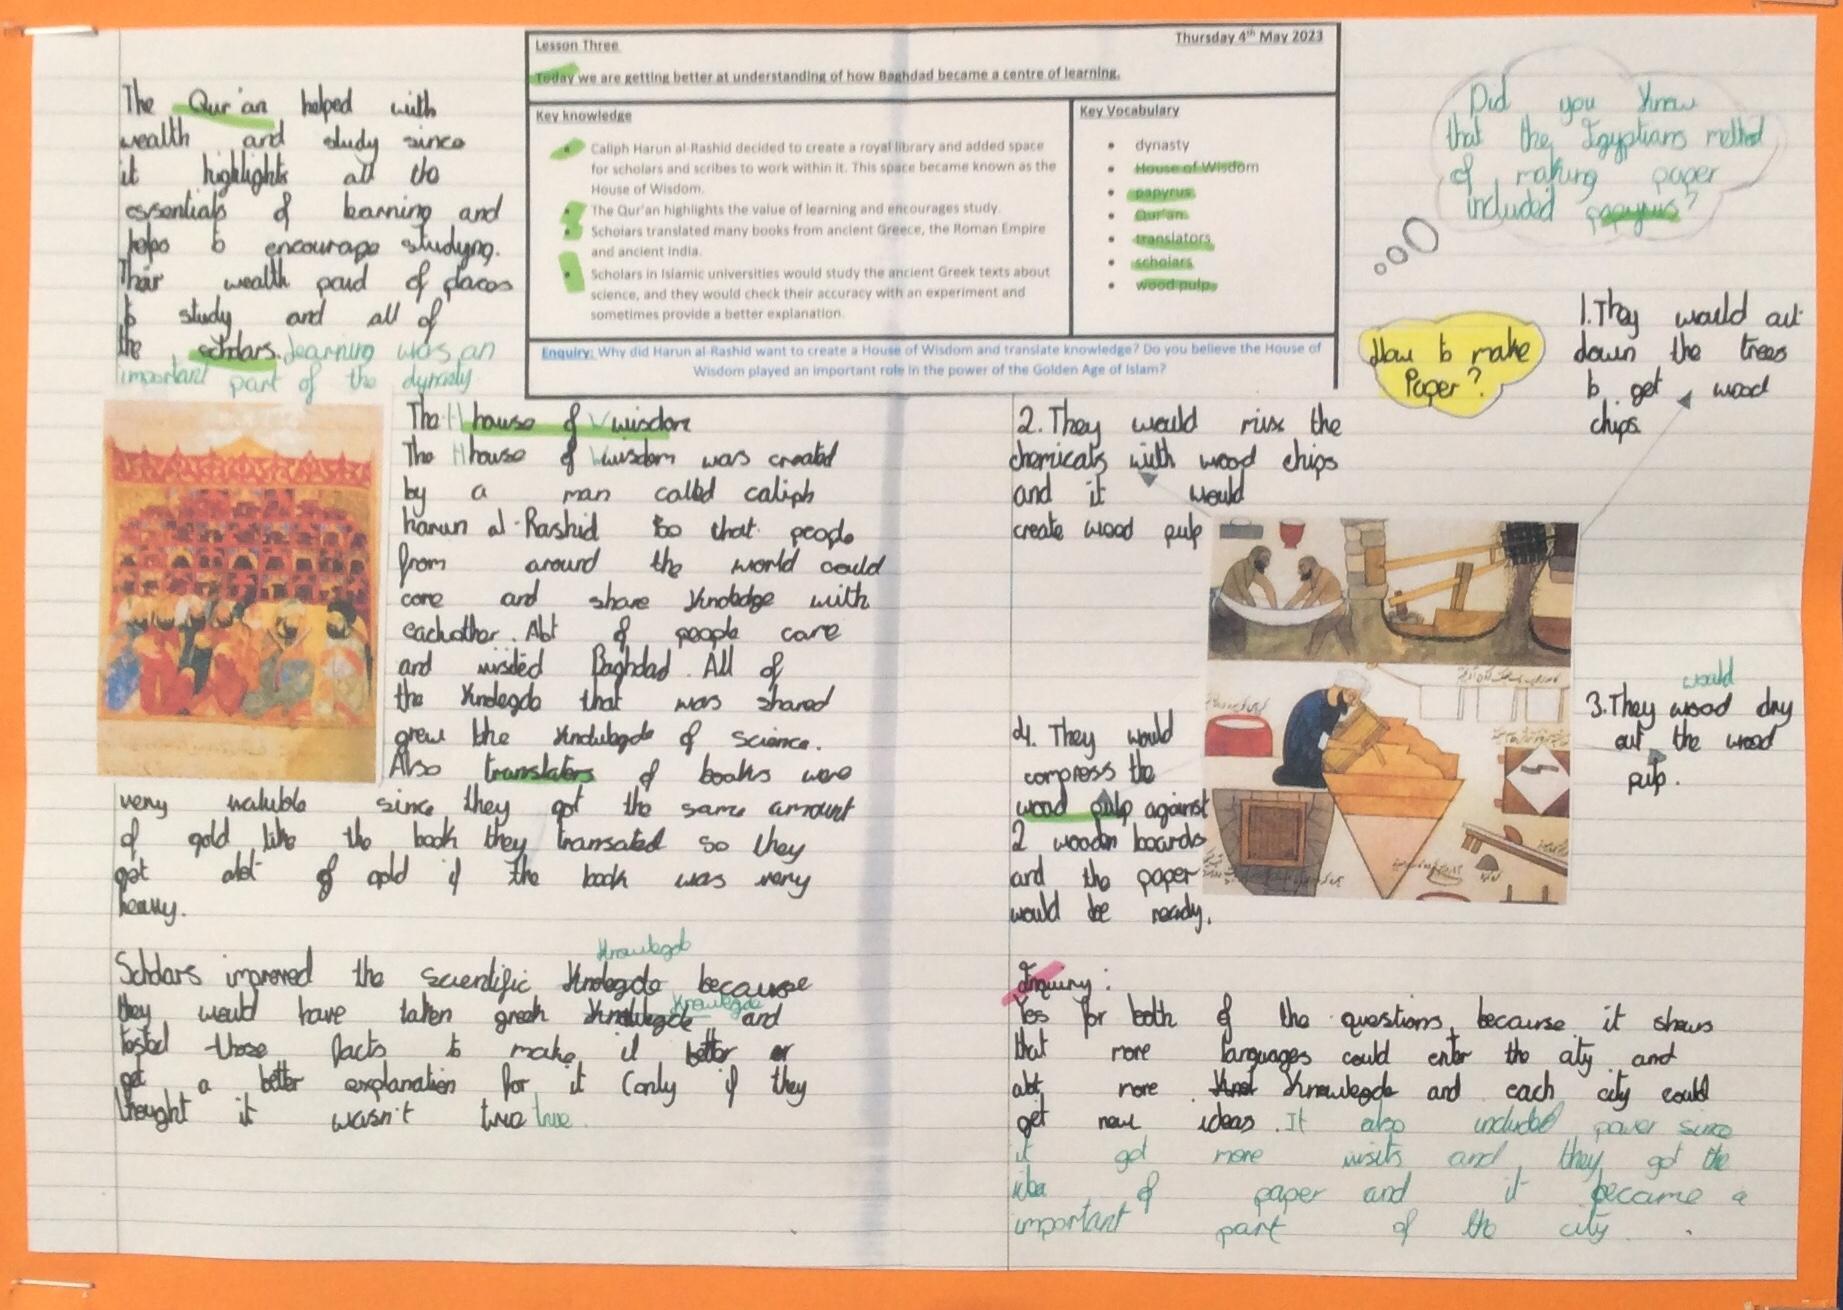 Lesson Three
Thursday 4th May 2023
Today we are getting better at understanding of how Baghdad became a centre of learning.
Key knowledge
• Caliph Harun al-Rashid decided to create a royal library and added space
for scholars and scribes to work within it. This space became known as the
House of Wisdom.
• The Qur'an highlights the value of learning and encourages study.
• Scholars translated many books from ancient Greece, the Roman Empire
and ancient India.
• Scholars in Islamic universities would study the ancient Greek texts about
science, and they would check their accuracy with an experiment and
sometimes provide a better explanation.
Key Vocabulary
• dynasty
• House of Wisdom
• papyrus
• Qur'an
• translators
• scholars
• wood pulp
Enquiry: Why did Harun al-Rashid want to create a House of Wisdom and translate knowledge? Do you believe the House of
Wisdom played an important role in the power of the Golden Age of Islam?
The Qur'an helped with
wealth and study since
it highlights all the
essentials of learning and
helps to encourage studying.
Their wealth paid of places
to study and all of
the scholars. learning was an
important part of the dynasty
The House of Wisdom
The House of Wisdom was created
by a man called caliph
harun al-Rashid so that people
from around the world could
come and share knoledge with
eachother. Alot of people came
and visited Baghdad. All of
the knolegde that was shared
grew the knowlegde of science.
Also translators of books were
very valuble since they got the same amount
of gold like the book they transated so they
got alot of gold if the book was very
heavy.
Knowlegde
Scholars improved the scientific knolegde because
they would have taken greek knowlegde Knowlegde and
tested those facts to make it better or
get a better explanation for it (only if they
thought it wasn't true true.
Did you know
that the Egyptians method
of making paper
included papyrus?
How to make
Paper?
1. They would cut
down the trees
to get wood
chips
2. They would mix the
chemicals with wood chips
and it would
create wood pulp
would
3. They wood dry
out the wood
pulp.
4. They would
compress the
wood pulp against
2 wooden boards
and the paper
would be ready.
Enquiry:
Yes for both of the questions, because it shows
that more languages could enter the city and
alot more Knowlegde and each city could
get new ideas. It also included power since
it got more visits and, they got the
idea of paper and it became a
important part of the city.